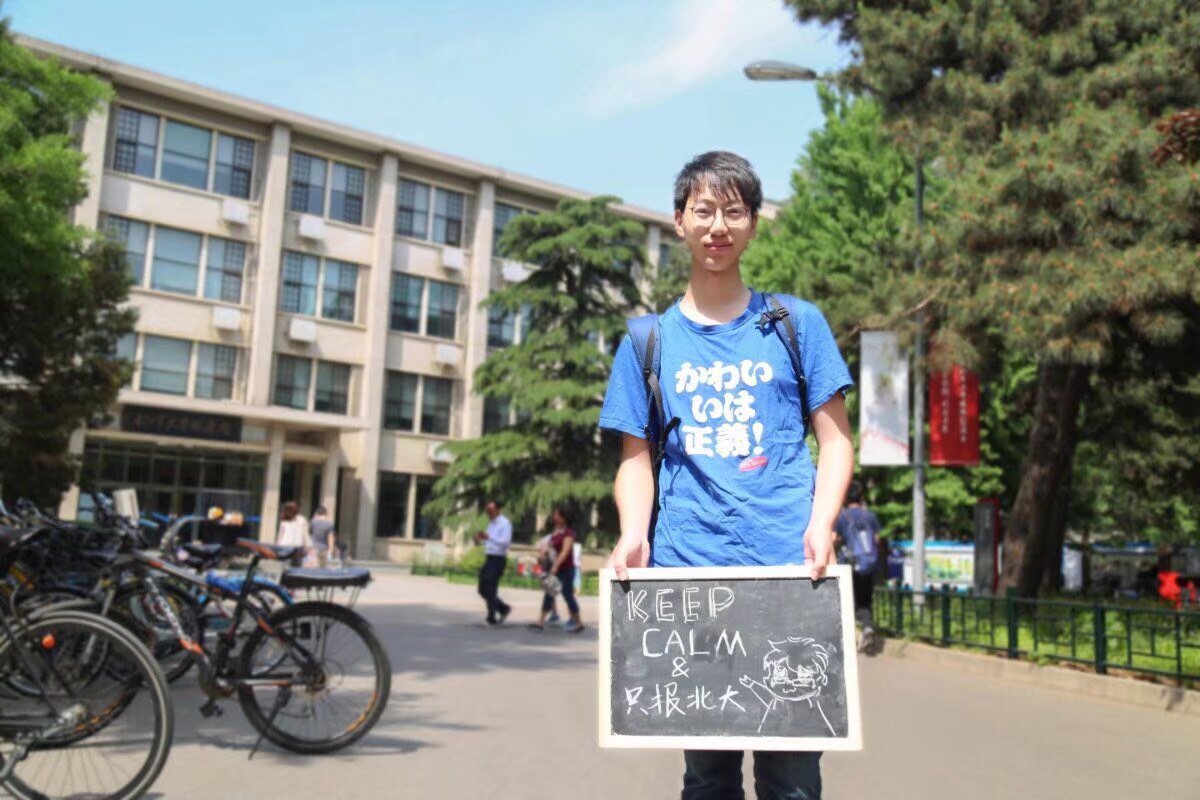 かわい
いは
正義!
KEEP
CALM
&
只报北大